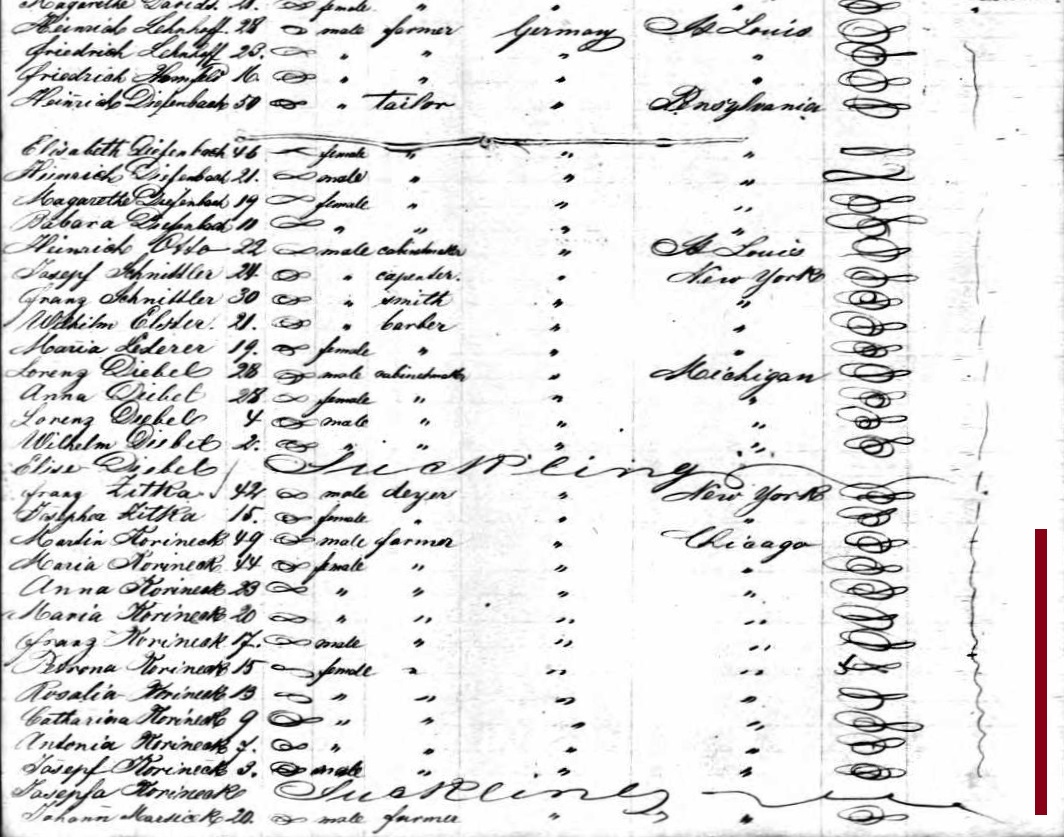 Magarethe Davids. 21. female "
Heinrich Lehnhoff. 28 male farmer Germany St Louis
Friedrich Lehnhoff 23. " " " "
Friedrich 16. " " " "
Heinrich Diefenbach 50 " tailor " Pensylvania
Elisabeth Diefenbach 46 female " " "
Heinrich Diefenbach 21. male " " "
Magarethe Diefenbach 19 female " " "
Babara Diefenbach 11 " " " "
Heinrich Otto 22 male cabinetmaker St Louis
Josepf Schnittler 24. " capenter. " New York
Franz Schnittler 30 " smith " "
Wilhilm Elster. 21. " barber " "
Maria Lederer 19. female " " "
Lorenz Diebel 28 male cabinetmaker " Michigan
Anna Diebel 28 female " " "
Lorenz Diebel 4 male " " "
Wilhelm Diebel 2. " " " "
Elise Diebel Suckling
Franz Zitka 42 male deyer " New York
Josepha Zitka 15. female " " "
Martin Korineck 49 male farmer " Chicago
Maria Korineck 44 female " " "
Anna Korineck 23 " " " "
Maria Korineck 20 " " " "
Franz Korineck 17. male " " "
Korineck 15 female " " "
Rosalia Korineck 13 " " " "
Catharina Korineck 9 " " " "
Antonia Korineck 7. " " " "
Josepf Korineck 3. male " " "
Josepfa Korineck Suckling
Johann 20. male farmer " "